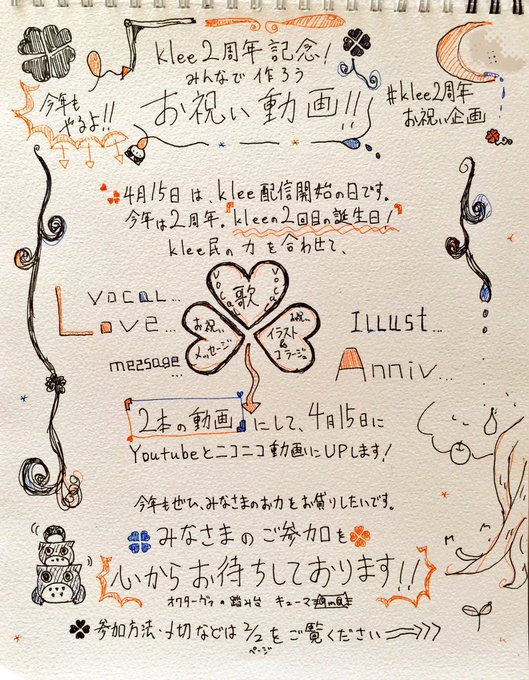 klee2周年記念!
みんなで作ろう
お祝い動画!!
今年も
やるよ!!
#klee2周年
お祝い企画
4月15日は、klee配信開始の日です。
今年は2周年。『kleeの2回目の誕生日!』
klee民の力を合わせて、
Vocal...
Love...
message...
vocal
歌
お祝い
メッセージ
お祝い
イラスト
&
コラージュ
Illust...
Anniv...
2本の動画にして、4月15日に
Youtubeとニコニコ動画にUPします!
今年もぜひ、みなさまのお力をお貸りしたいです。
みなさまのご参加を
心からお待ちしております!!
オクターヴの踏み台 キューマ
参加方法・〆切などは2/2をご覧ください
ページ